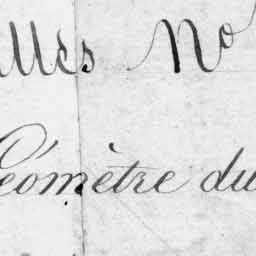 lles No
Géomètre du